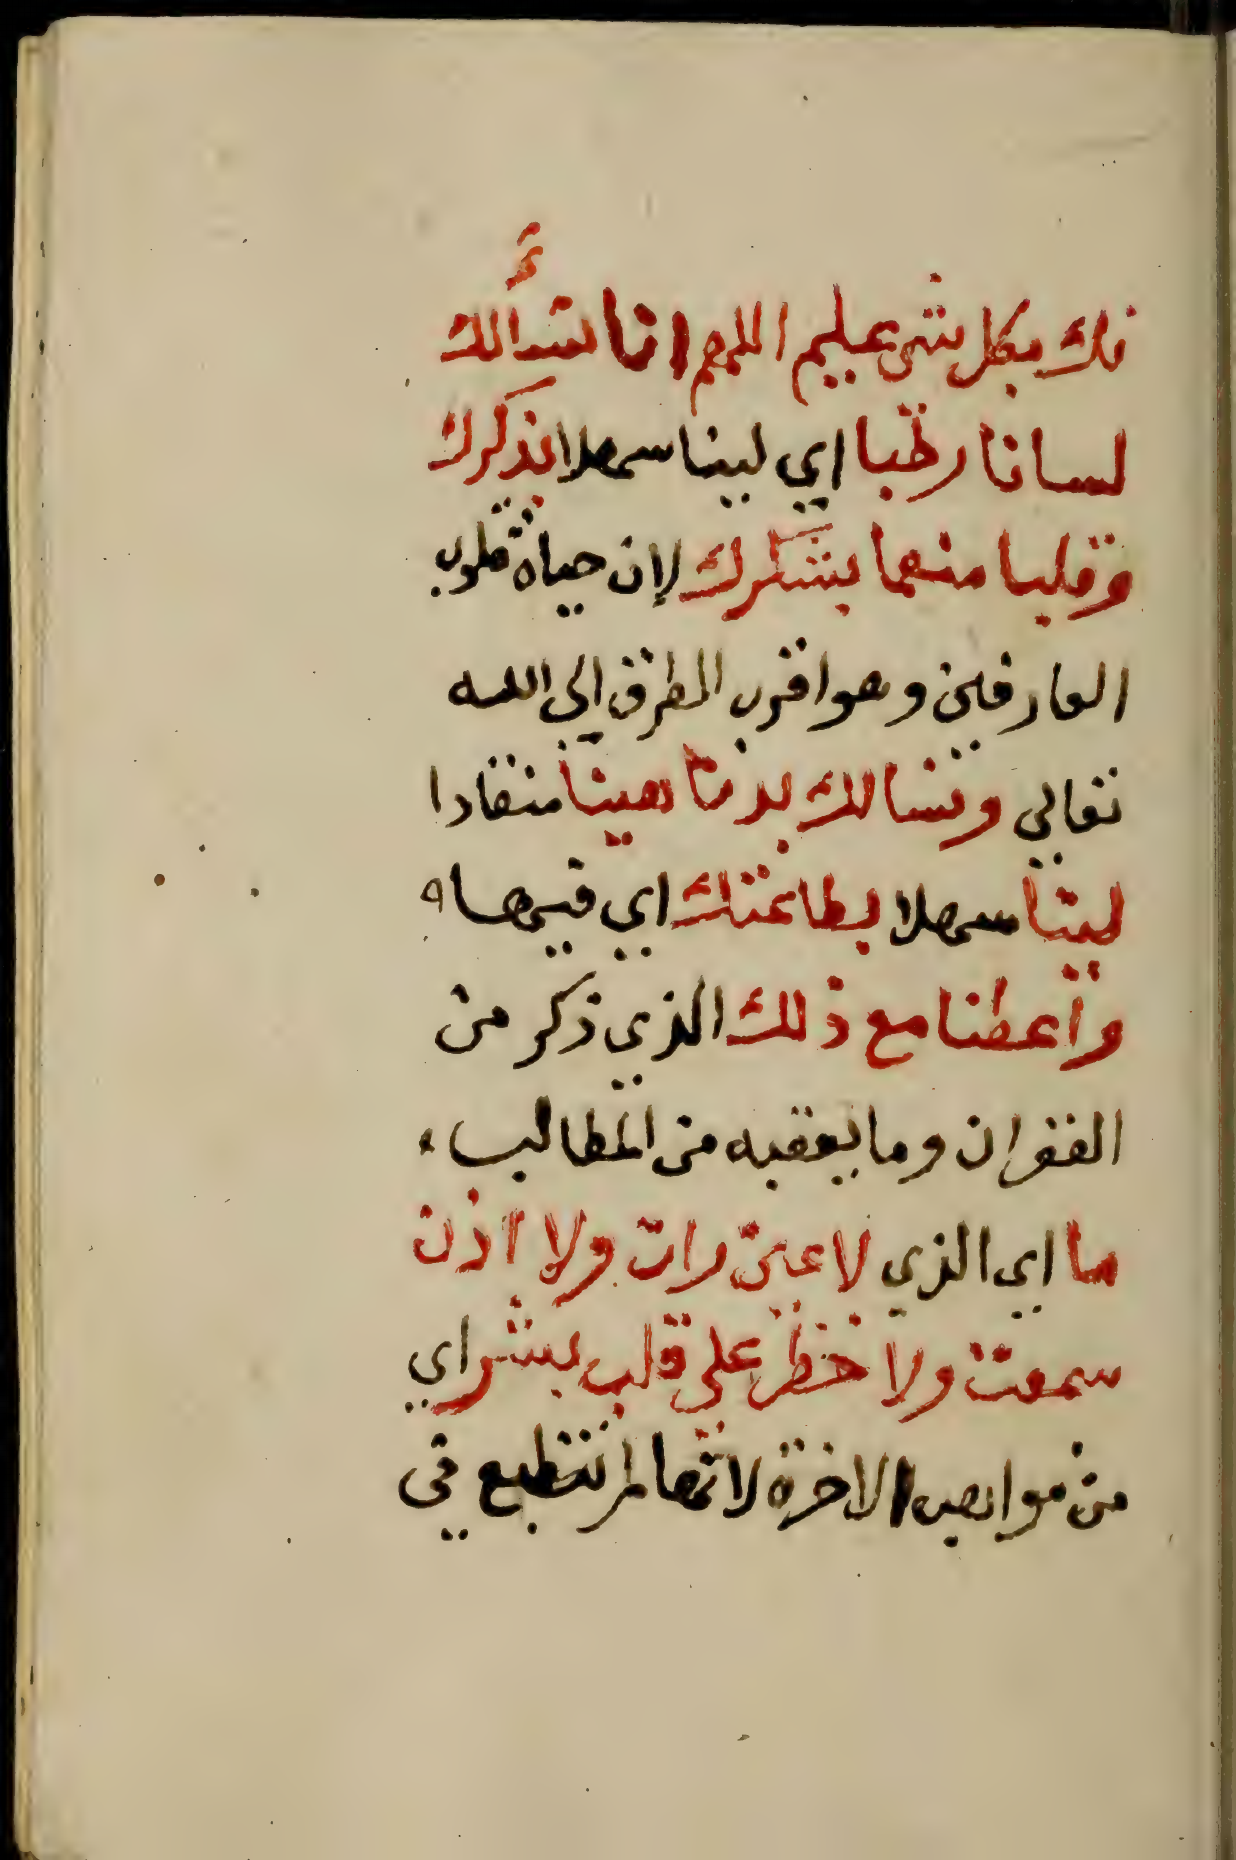 نك بكل شي عليم اللهم انا نسألك
لسانا رطبا اي لينا سهلا بذكرك
وقلبا منعما بشكرك لان حياة قلوب
العارفين وهو اقرب الطرق الي الله
تعالي ونسالك بدنا هينا منقادا
لينا سهلا بطاعتك اي فيها
وأعطنا مع ذلك الذي ذكر من
الغفران وما يعقبه من المطالب
ما اي الذي لا عين رات ولا اذن
سمعت ولا خطر علي قلب بشر اي
من مواهب الاخرة لانها لم تنطبع في